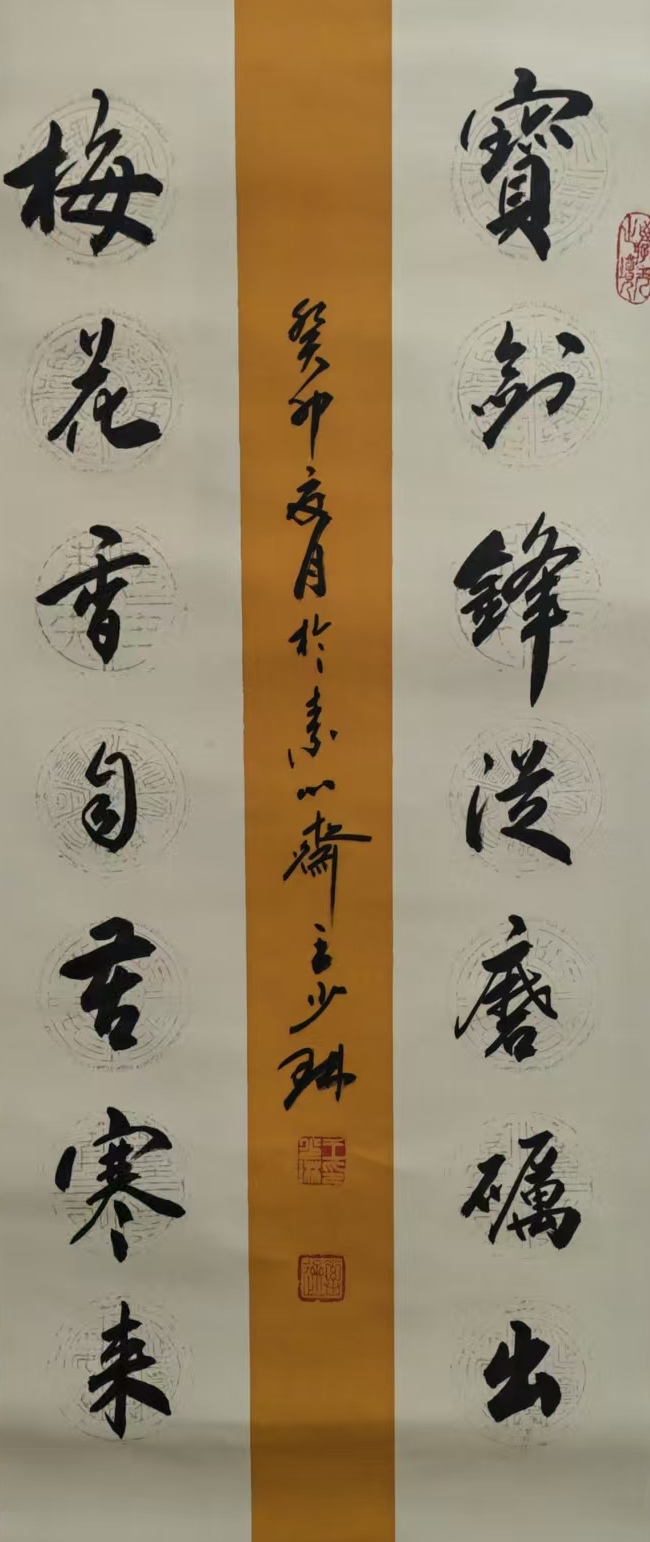 寶劍鋒從磨礪出
梅花香自苦寒來
癸卯夏月於素心齋王少琳